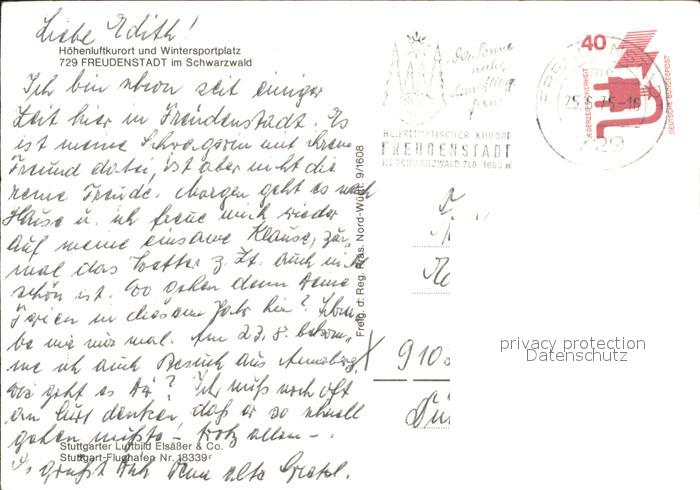 Liebe Edith!
Höhenluftkurort und Wintersportplatz
729 FREUDENSTADT im Schwarzwald
Ich bin schon seit einiger
Zeit hier in Freudenstadt. Es
ist meine Schwägerin mit ihrem
Freund dabei, ist aber nicht die
reine Freude. Morgen geht es nach
Hause u. ich freue mich wieder
auf meine einsame Klause, zu-
mal das Wetter z. Zt. auch nicht
schön ist. Wo gehen denn Deine
Ferien in diesem Jahr hin? Schrei-
be mir mal. Am 27.8. bekom-
me ich auch Besuch aus Arnsberg,
wie geht es Dir? Ich muß noch oft
an Curt denken daß er so schnell
gehen mußte! trotz allem -.
Stuttgarter Luftbild Elsäßer & Co.
Stuttgart-Flughafen Nr. 18339
Es grüßt Dich Deine alte Gretel.
Freig. d. Reg. Präs. Nord-Württ. 9/1608
der Sonne
nah,
dem Alltag
fern
HEILKLIMATISCHER KURORT
FREUDENSTADT
IM SCHWARZWALD 700-1000 M
729
40
JEDERZEIT SICHERHEIT
DEUTSCHE BUNDESPOST
910
privacy protection
Datenschutz